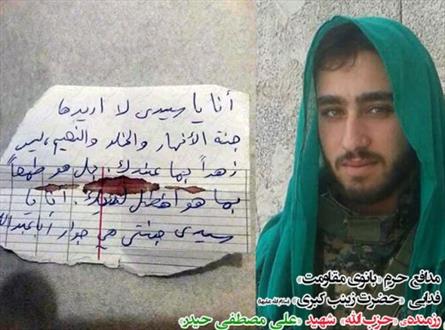 أنا يا سيدي لا اريدها
جنة الأنهار والخلد والنعيم، ليس
زهداً بما عندك. بل هو طمعاً
بما هو افضل أنا يا
سيدي جنتي هي جوار أبا عبدالله
مدافع حرم «بانوی مقاومت»
فدایی «حضرت زینب کبری»
رزمنده «حزب‌الله» شهید «علی مصطفی حیدر»